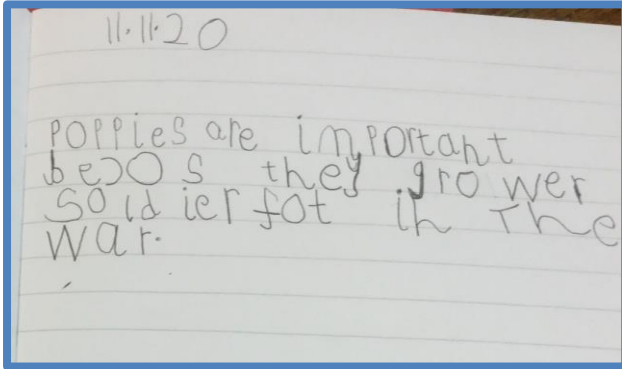 11.11.20
poppies are important
becos they gro wer
soldier fot in the
war.